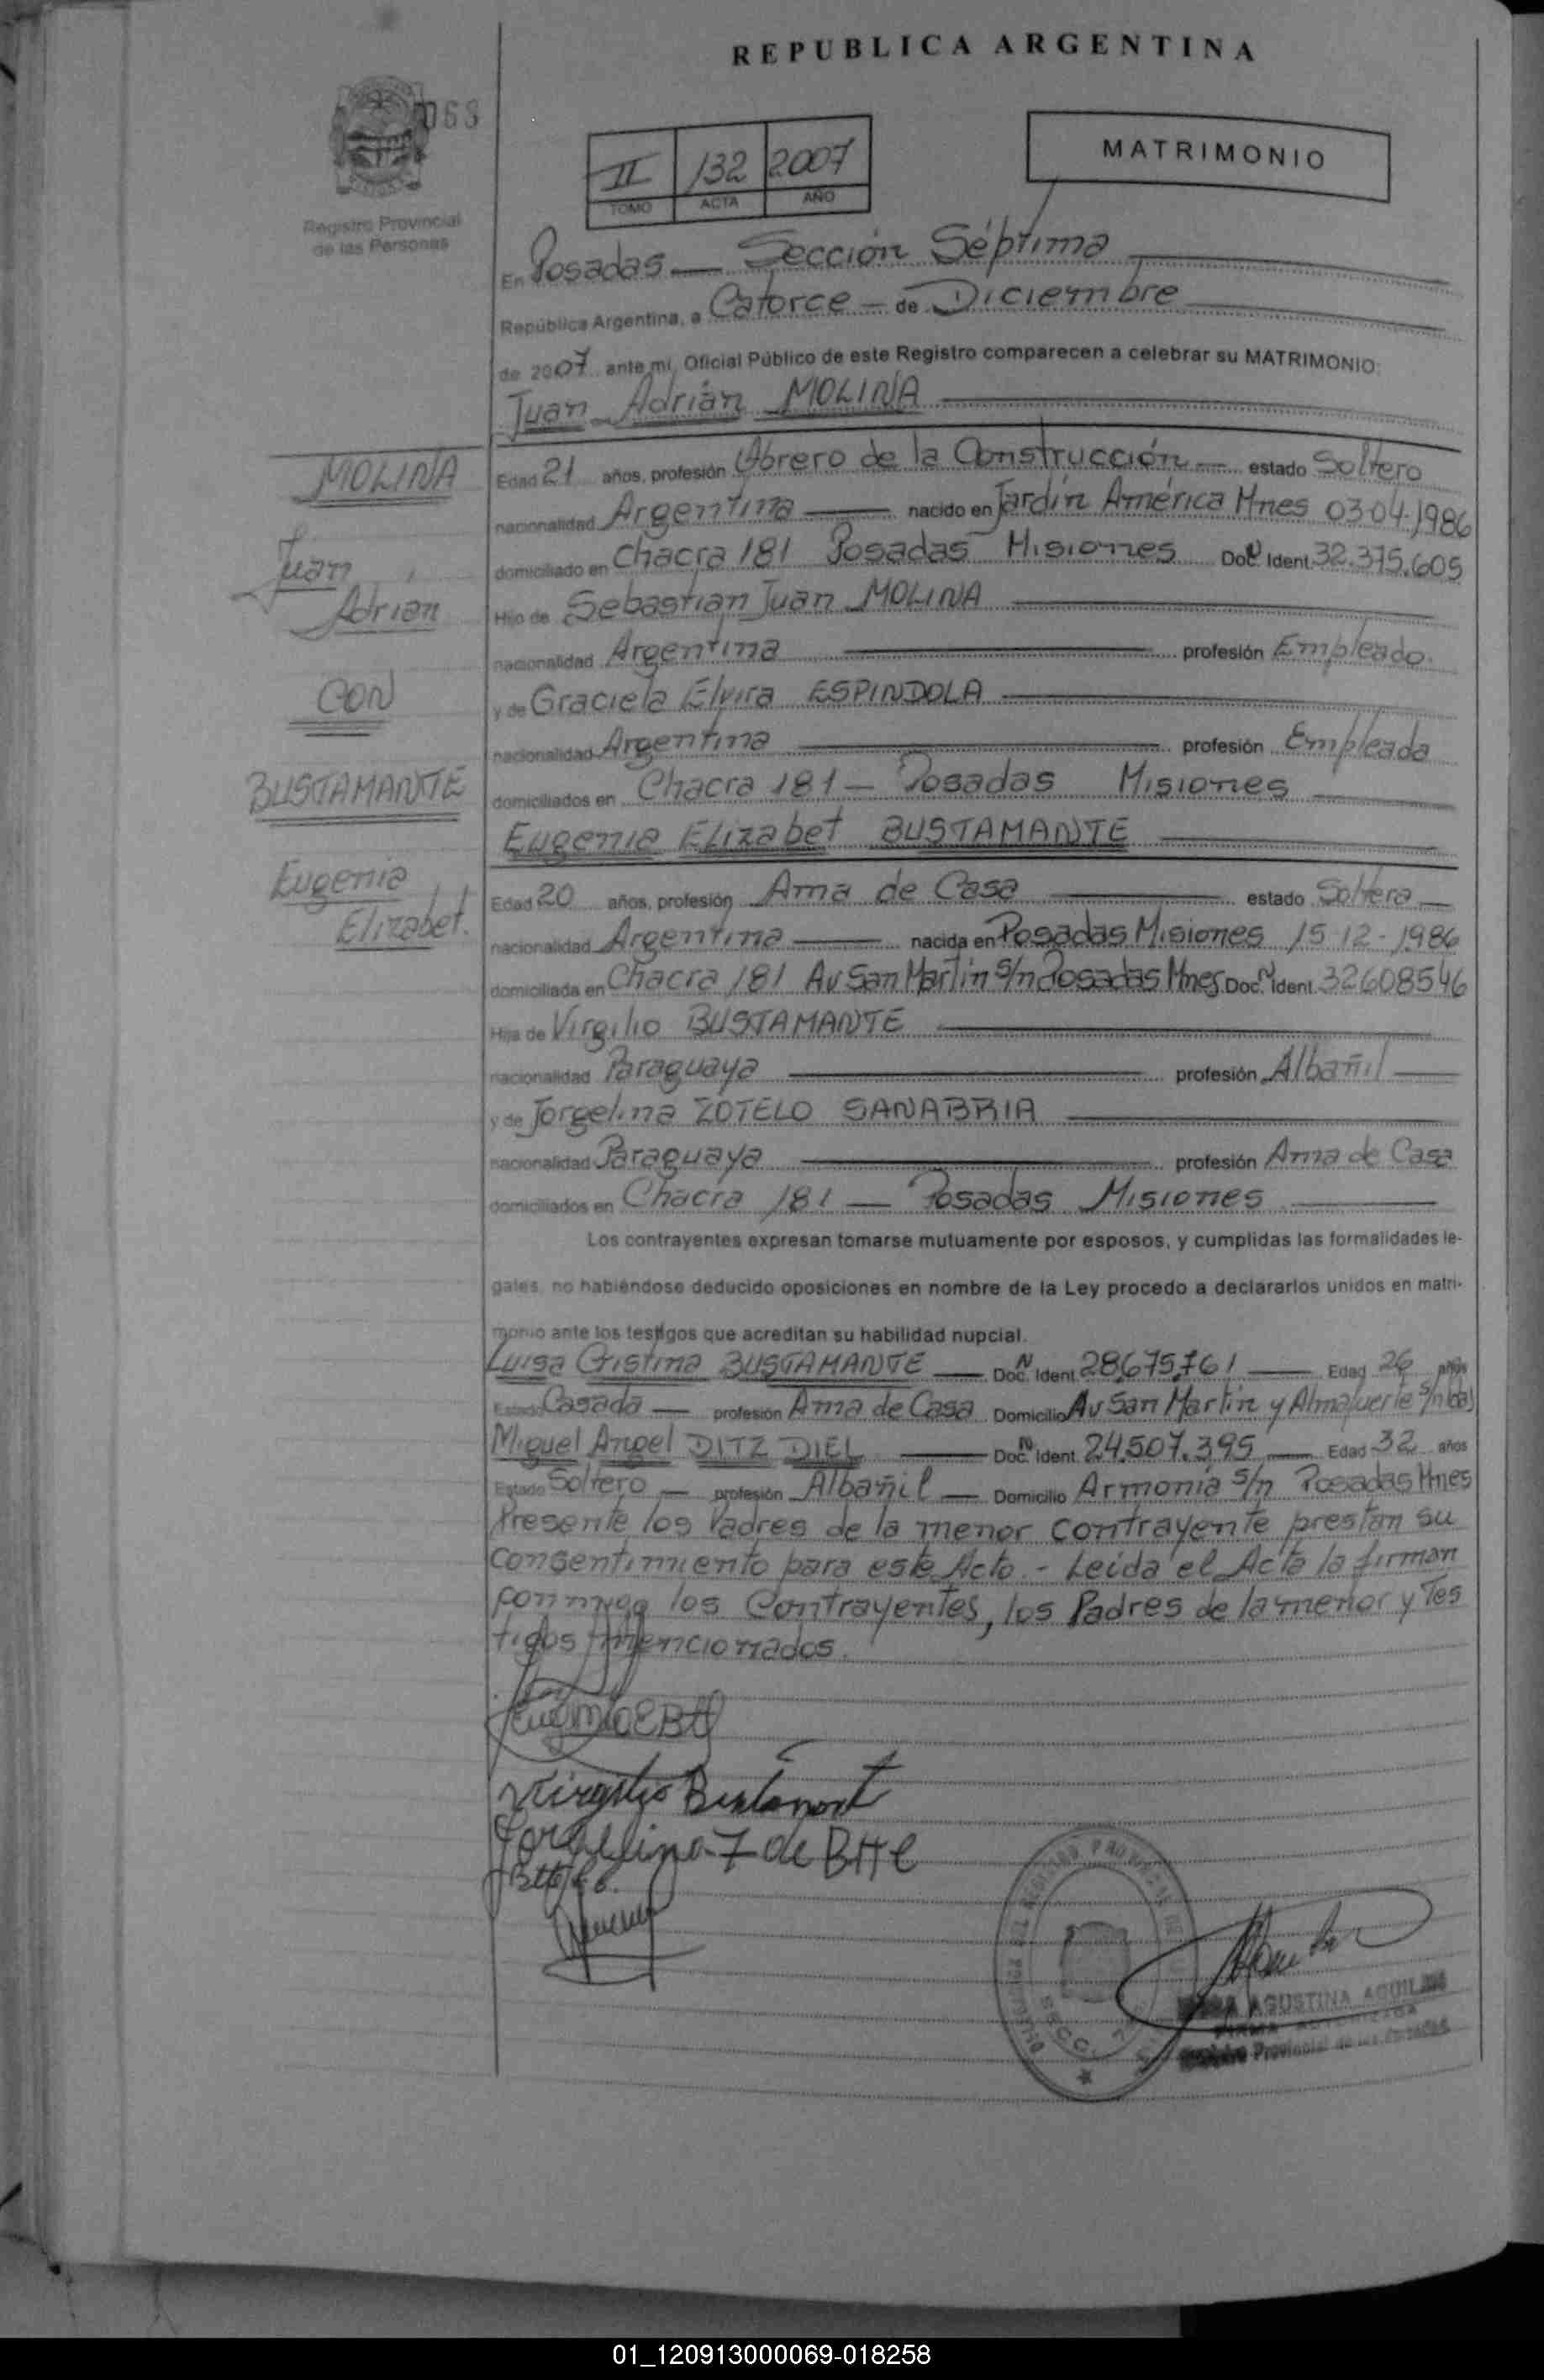 REPUBLICA ARGENTINA
068
II 132 2007
TOMO ACTA AÑO
MATRIMONIO
Registro Provincial
de las Personas
En Posadas — Sección Séptima
República Argentina, a Catorce — de Diciembre
de 2007 ante mi, Oficial Público de este Registro comparecen a celebrar su MATRIMONIO:
Juan Adrián MOLINA
MOLINA
Juan
Adrian
CON
BUSTAMANTE
Eugenia
Elizabet.
Edad 21 años, profesión Obrero de la Construcción — estado Soltero
nacionalidad Argentina — nacido en Jardín América Mnes 03-04-1986
domiciliado en Chacra 181 Posadas Misiones Doc. N Ident. 32.375.605
Hijo de Sebastian Juan MOLINA
nacionalidad Argentina — profesión Empleado.
y de Graciela Elvira ESPINDOLA
nacionalidad Argentina — profesión Empleada
domiciliados en Chacra 181 — Posadas Misiones
Eugenia Elizabet BUSTAMANTE
Edad 20 años, profesión Ama de Casa — estado Soltera —
nacionalidad Argentina — nacida en Posadas Misiones 15-12-1986
domiciliada en Chacra 181 Av San Martin s/n Posadas Mnes. Doc. N Ident. 32608546
Hija de Virgilio BUSTAMANTE
nacionalidad Paraguaya — profesión Albañil —
y de Jorgelina ZOTELO SANABRIA
nacionalidad Paraguaya — profesión Ama de Casa
domiciliados en Chacra 181 — Posadas Misiones
Los contrayentes expresan tomarse mutuamente por esposos, y cumplidas las formalidades le-
gales, no habiéndose deducido oposiciones en nombre de la Ley procedo a declararlos unidos en matri-
monio ante los testigos que acreditan su habilidad nupcial.
Luisa Cristina BUSTAMANTE — Doc. N Ident. 28.675.761 — Edad 26 años
Estado Casada — profesión Ama de Casa Domicilio Av San Martin y Almafuerte s/n
Miguel Angel DITZ DIEL — Doc. N Ident. 24.507.395 — Edad 32 años
Estado Soltero — profesión Albañil — Domicilio Armonía s/n Posadas Mnes
Presente los Padres de la menor contrayente prestan su
consentimiento para este Acto. - Leída el Acta la firman
conmigo los Contrayentes, los Padres de la menor y Tes
tigos mencionados.
Virgilio
Jorgelina Z de Btte
AGUSTINA AGUILAR
Registro Provincial de las Personas
SECC. 7
01_120913000069-018258